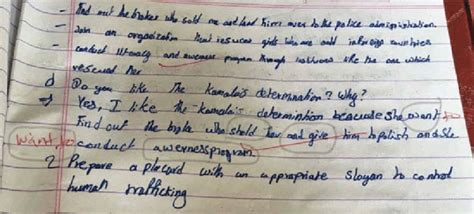 - Find out the broker who sold me and hand him over to the police administration.
- Join an organization that rescues girls who are sold in foreign countries
- conduct literacy and awareness program through [] like the one which
rescued her
d Do you like the kamala's determination? Why?
→ Yes, I like the kamala's determination because she want to
Find out the broke who shold her and give him to polish and she
want to conduct awerness program.
2 Prepare a placard with an appropriate slogan to control
human trafficking